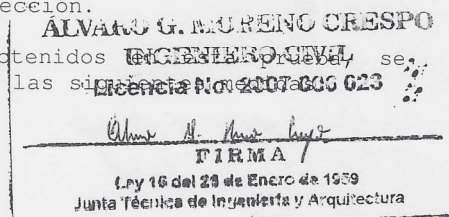 ección.
ÁLVARO G. MORENO CRESPO
tenidos en esta prueba, se
INGENIERO CIVIL
las siguientes
Licencia No. 2007-006-023
FIRMA
Ley 15 del 26 de Enero de 1959
Junta Técnica de Ingeniería y Arquitectura